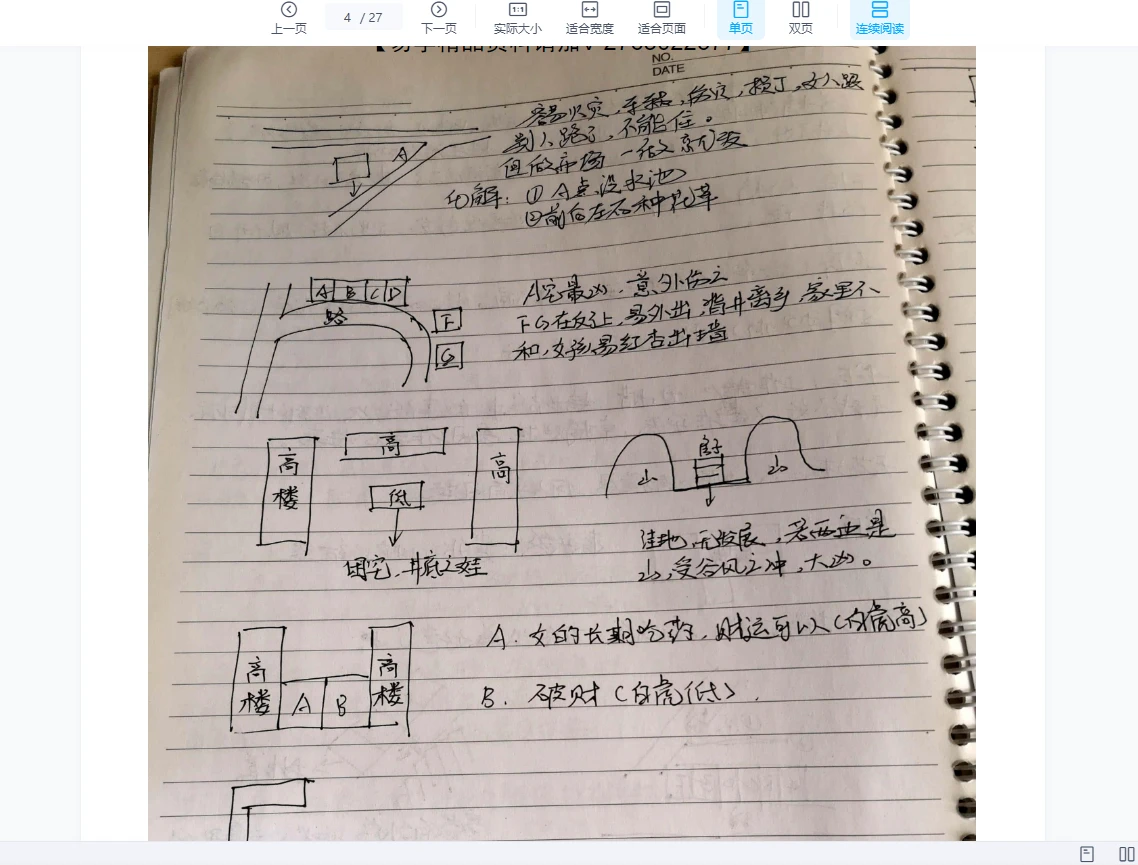 上一页
4 / 27
下一页
实际大小
适合宽度
适合页面
单页
双页
连续阅读
NO.
DATE
容易火灾,车祸,伤灾,损丁,
不能住。
但做市场 一做
化解:① A点设水池
②前后左右种花草
A
A B C D
路
F
G
A宅最凶,意外伤亡
F G在反弓上,易外出,背井离乡,家里不
和,女孩易红杏出墙
高楼
高
低
高
困宅,井底之蛙
山
房子
山
洼地,无发展,若两边是
山,受谷风之冲,大凶。
高楼
A
B
高楼
A. 女的长期吃药,财运可以(白虎高)
B. 破财(白虎低).